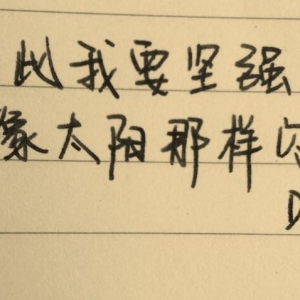 此我要坚强
像太阳那样
D